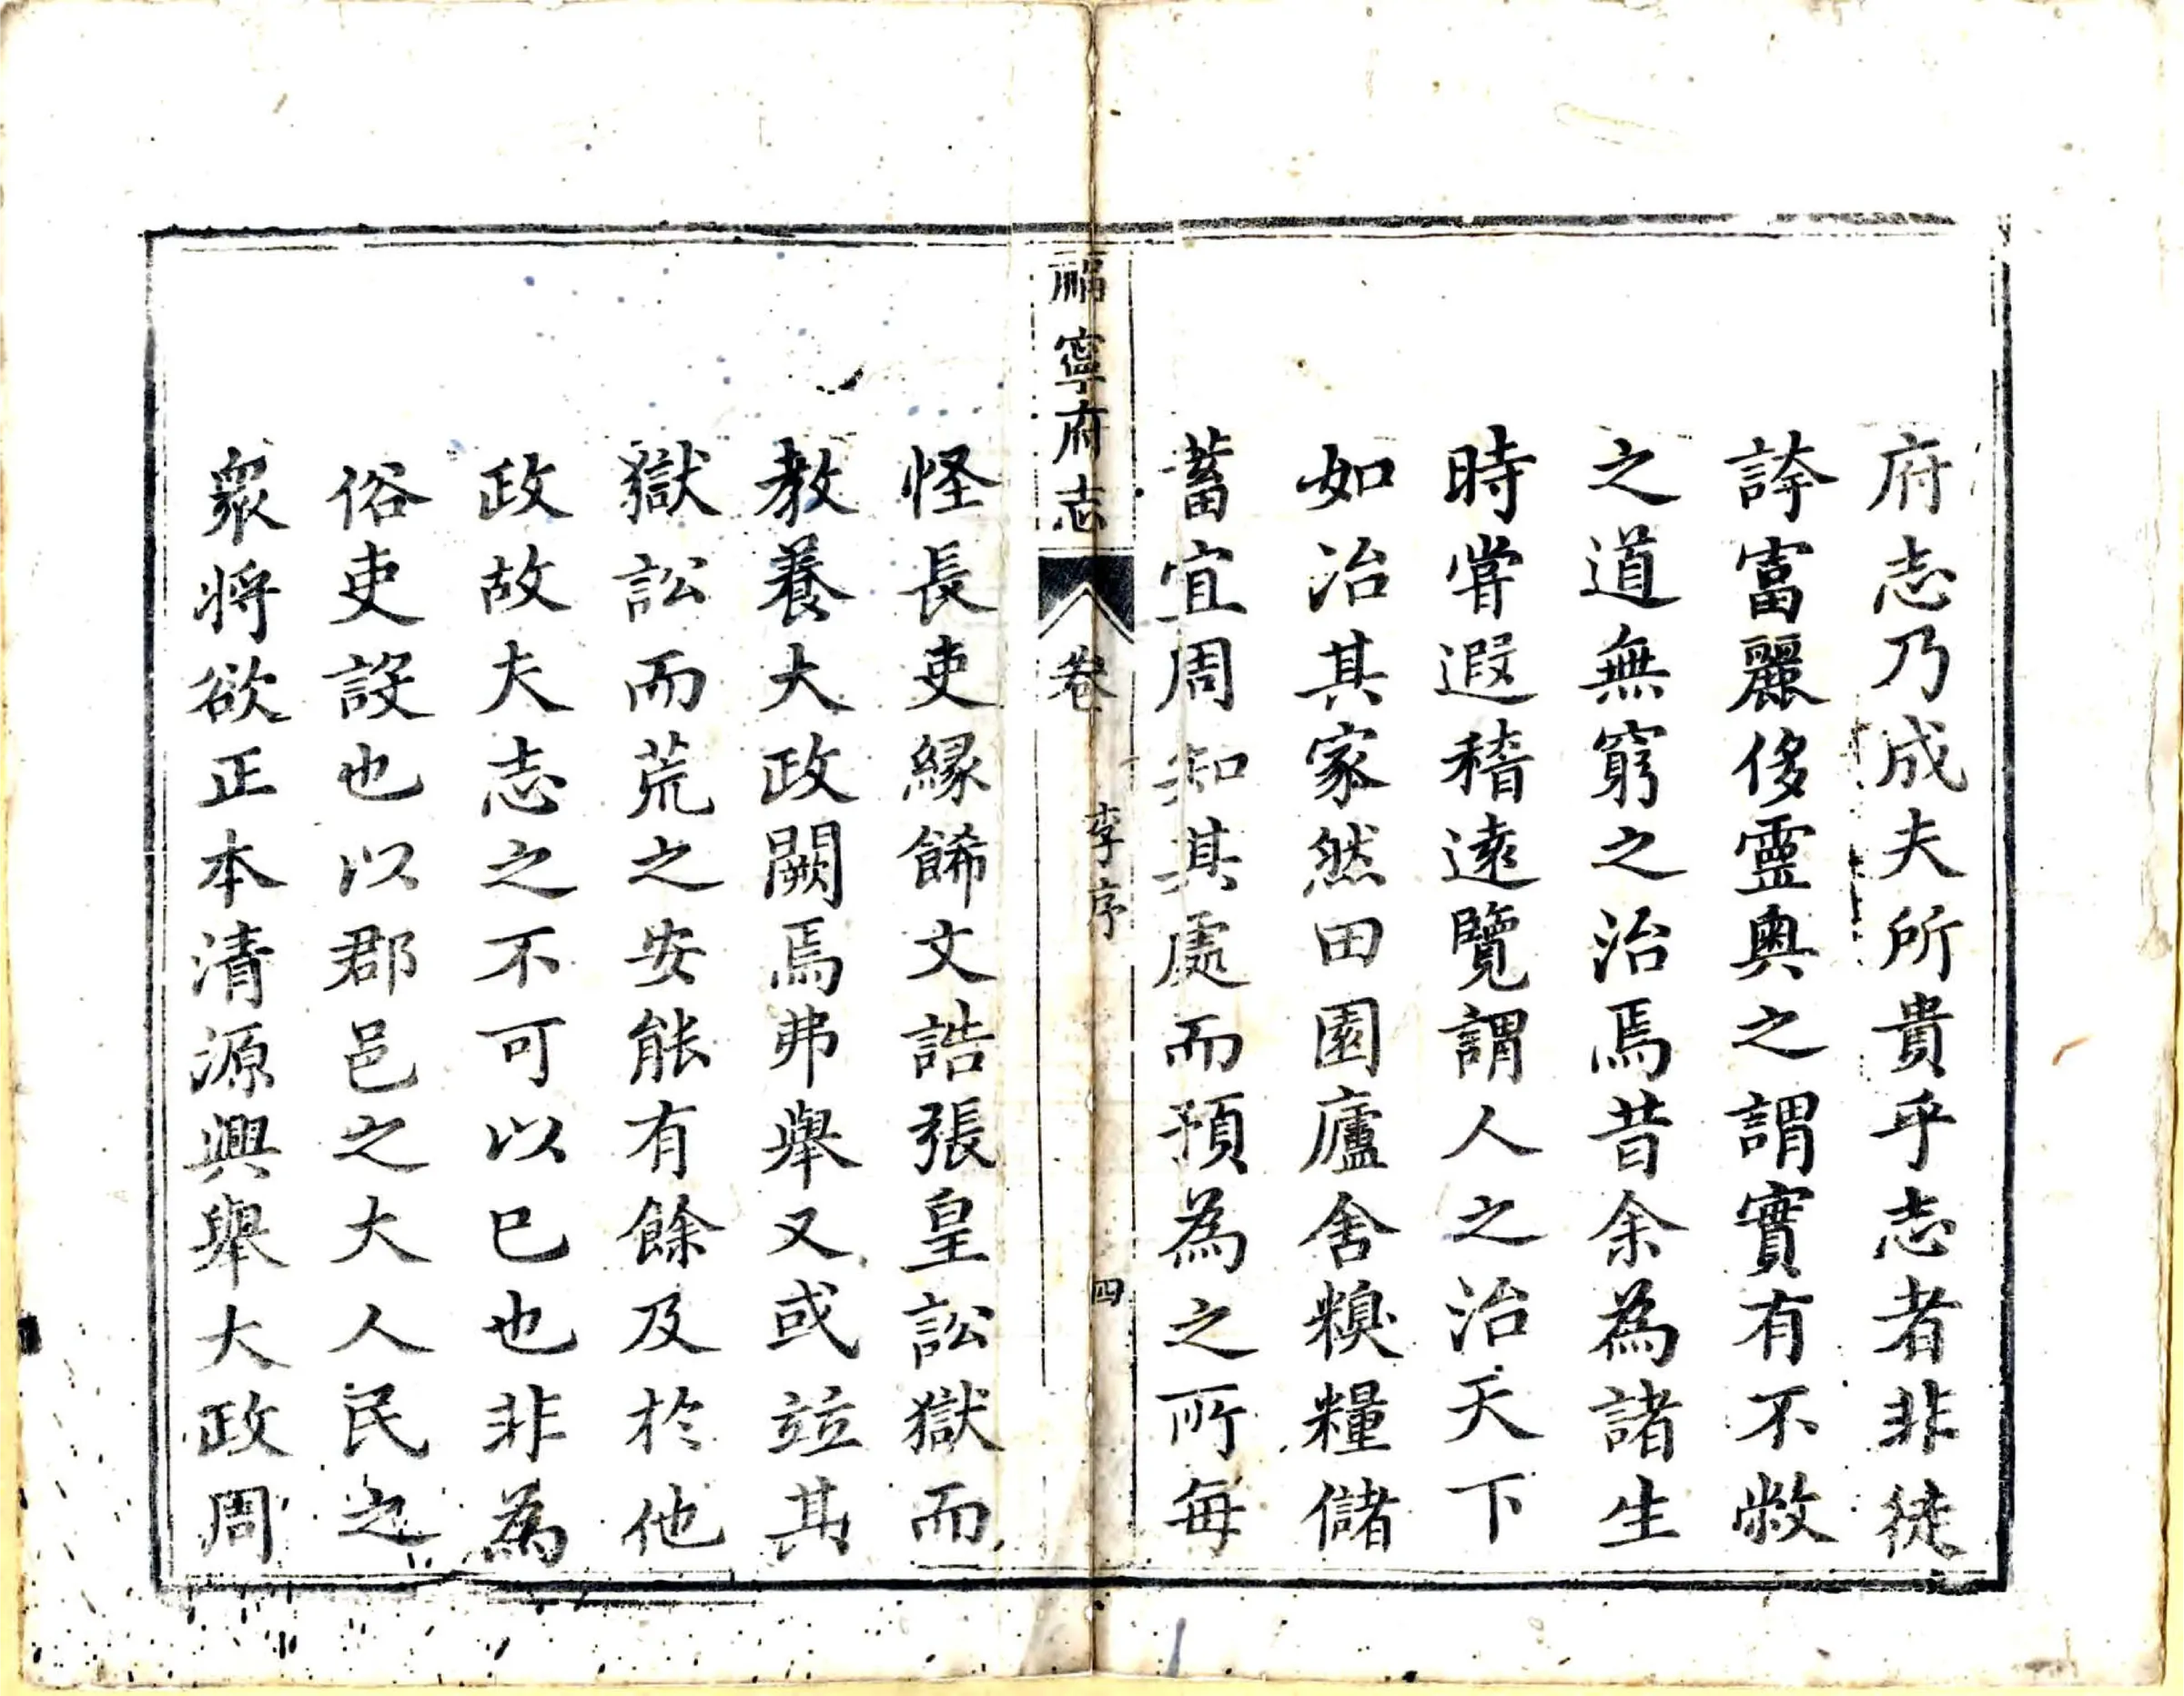 府志乃成夫所貴乎志者非徒
誇富麗侈靈奧之謂實有不敝
之道無窮之治焉昔余為諸生
時嘗遐稽遠覽謂人之治天下
如治其家然田園廬舍糗糧儲
蓄宜周知其處而預為之所每
福寧府志 卷 李序 四
怪長吏緣餙文誥張皇訟獄而
教養大政闕焉弗舉又或竝其
獄訟而荒之安能有餘及於他
政故夫志之不可以已也非為
俗吏設也以郡邑之大人民之
衆将欲正本清源興舉大政周